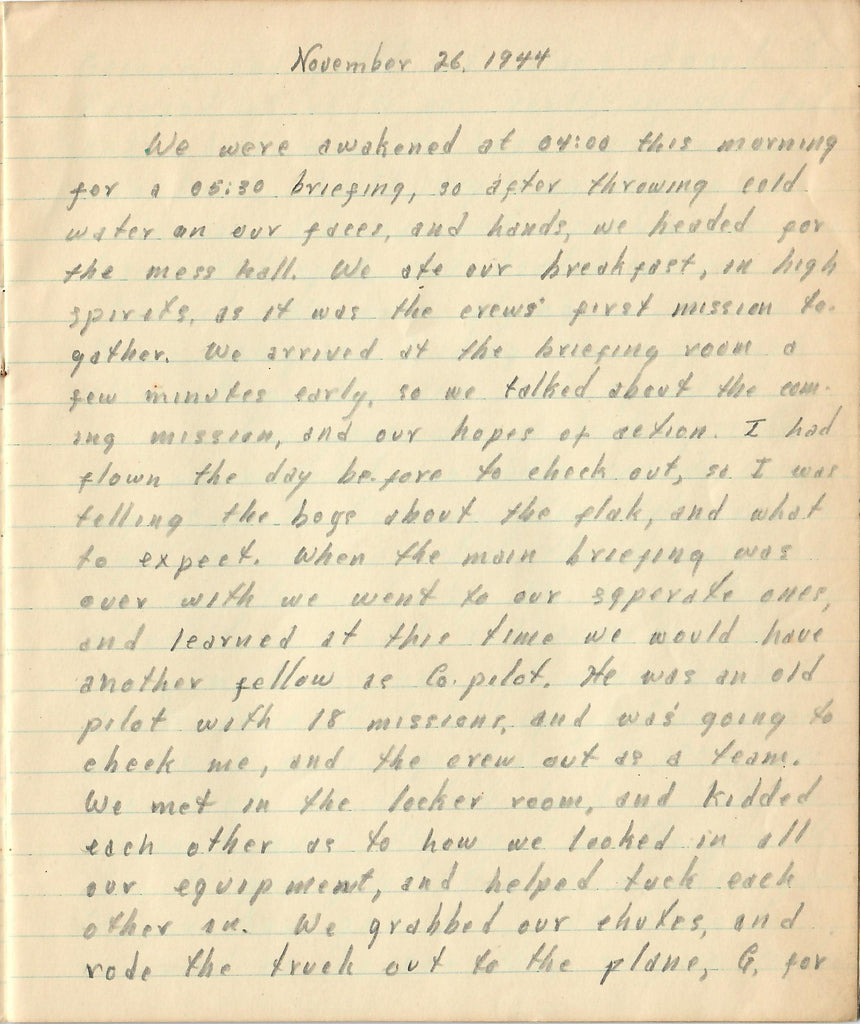 November 26, 1944
We were awakened at 04:00 this morning
for a 05:30 briefing, so after throwing cold
water on our faces, and hands, we headed for
the mess hall. We ate our breakfast, in high
spirits, as it was the crews' first mission to-
gather. We arrived at the briefing room a
few minutes early, so we talked about the com-
ing mission, and our hopes of action. I had
flown the day before to check out, so I was
telling the boys about the flak, and what
to expect. When the main briefing was
over with we went to our seperate ones,
and learned at this time we would have
another fellow as Co-pilot. He was an old
pilot with 18 missions, and was going to
check me, and the crew out as a team.
We met in the locker room, and kidded
each other as to how we looked in all
our equipment, and helped tuck each
other in. We grabbed our chutes, and
rode the truck out to the plane, G. for